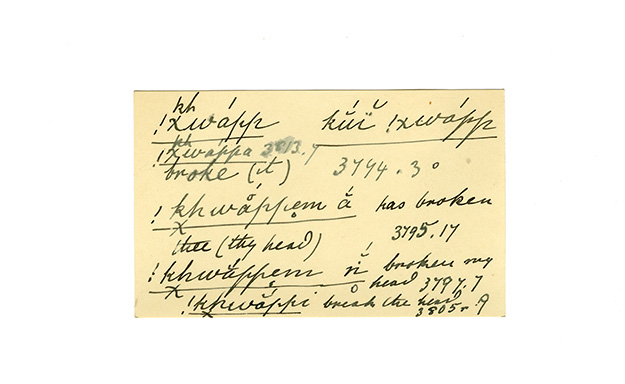 kh
!χwápp kŭ́ĭ !χwápp
kh
!χwáppa 3813.7
broke (it) 3794.3°
!khwắppẹm ắ has broken
χ
thee (thy head) 3795.17
!khwắppẹm ń̆ broken my
χ head 3797.7
!khwắppi break the head
χ 3805r. A